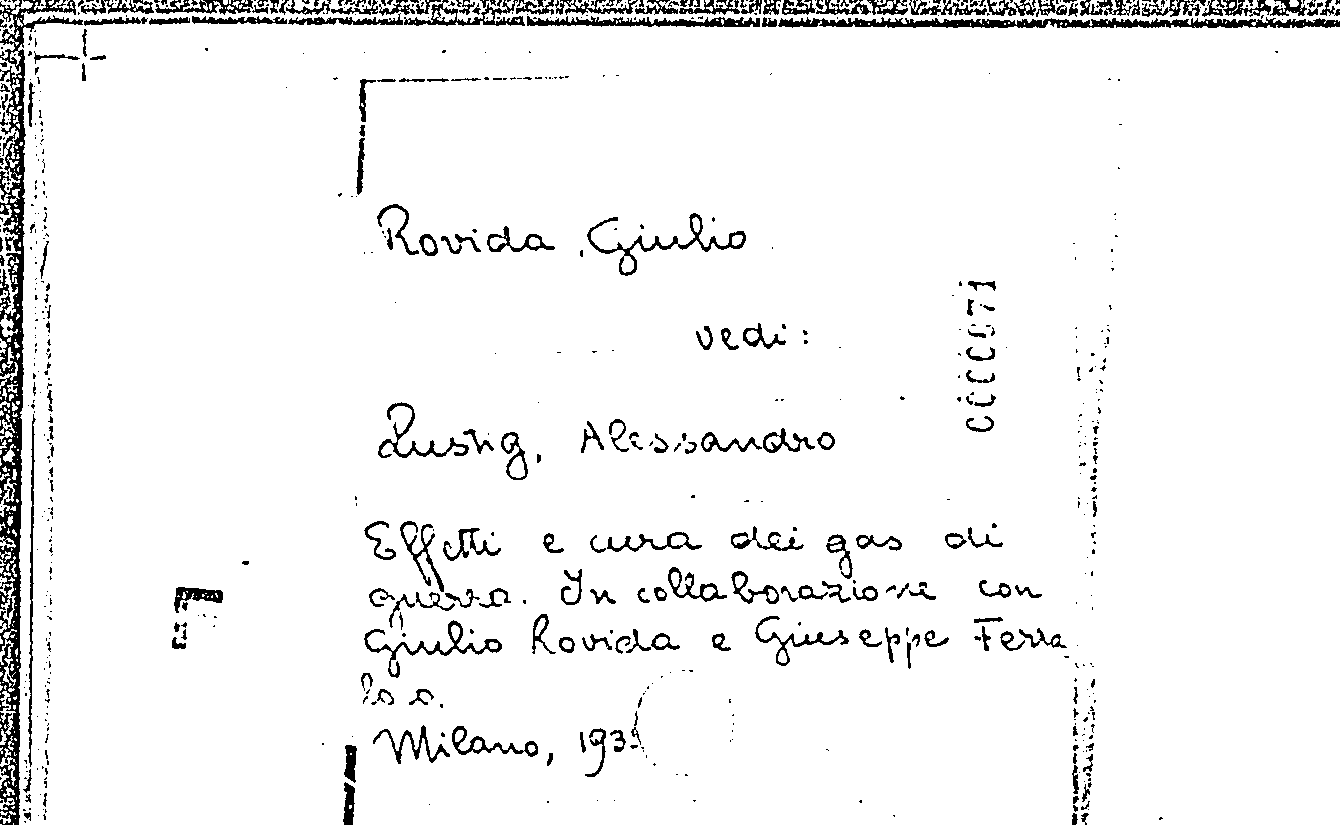 Rovida, Giulio
vedi:
Lustig, Alessandro
Effetti e cura dei gas di
guerra. In collaborazione con
Giulio Rovida e Giuseppe Ferra
Milano,